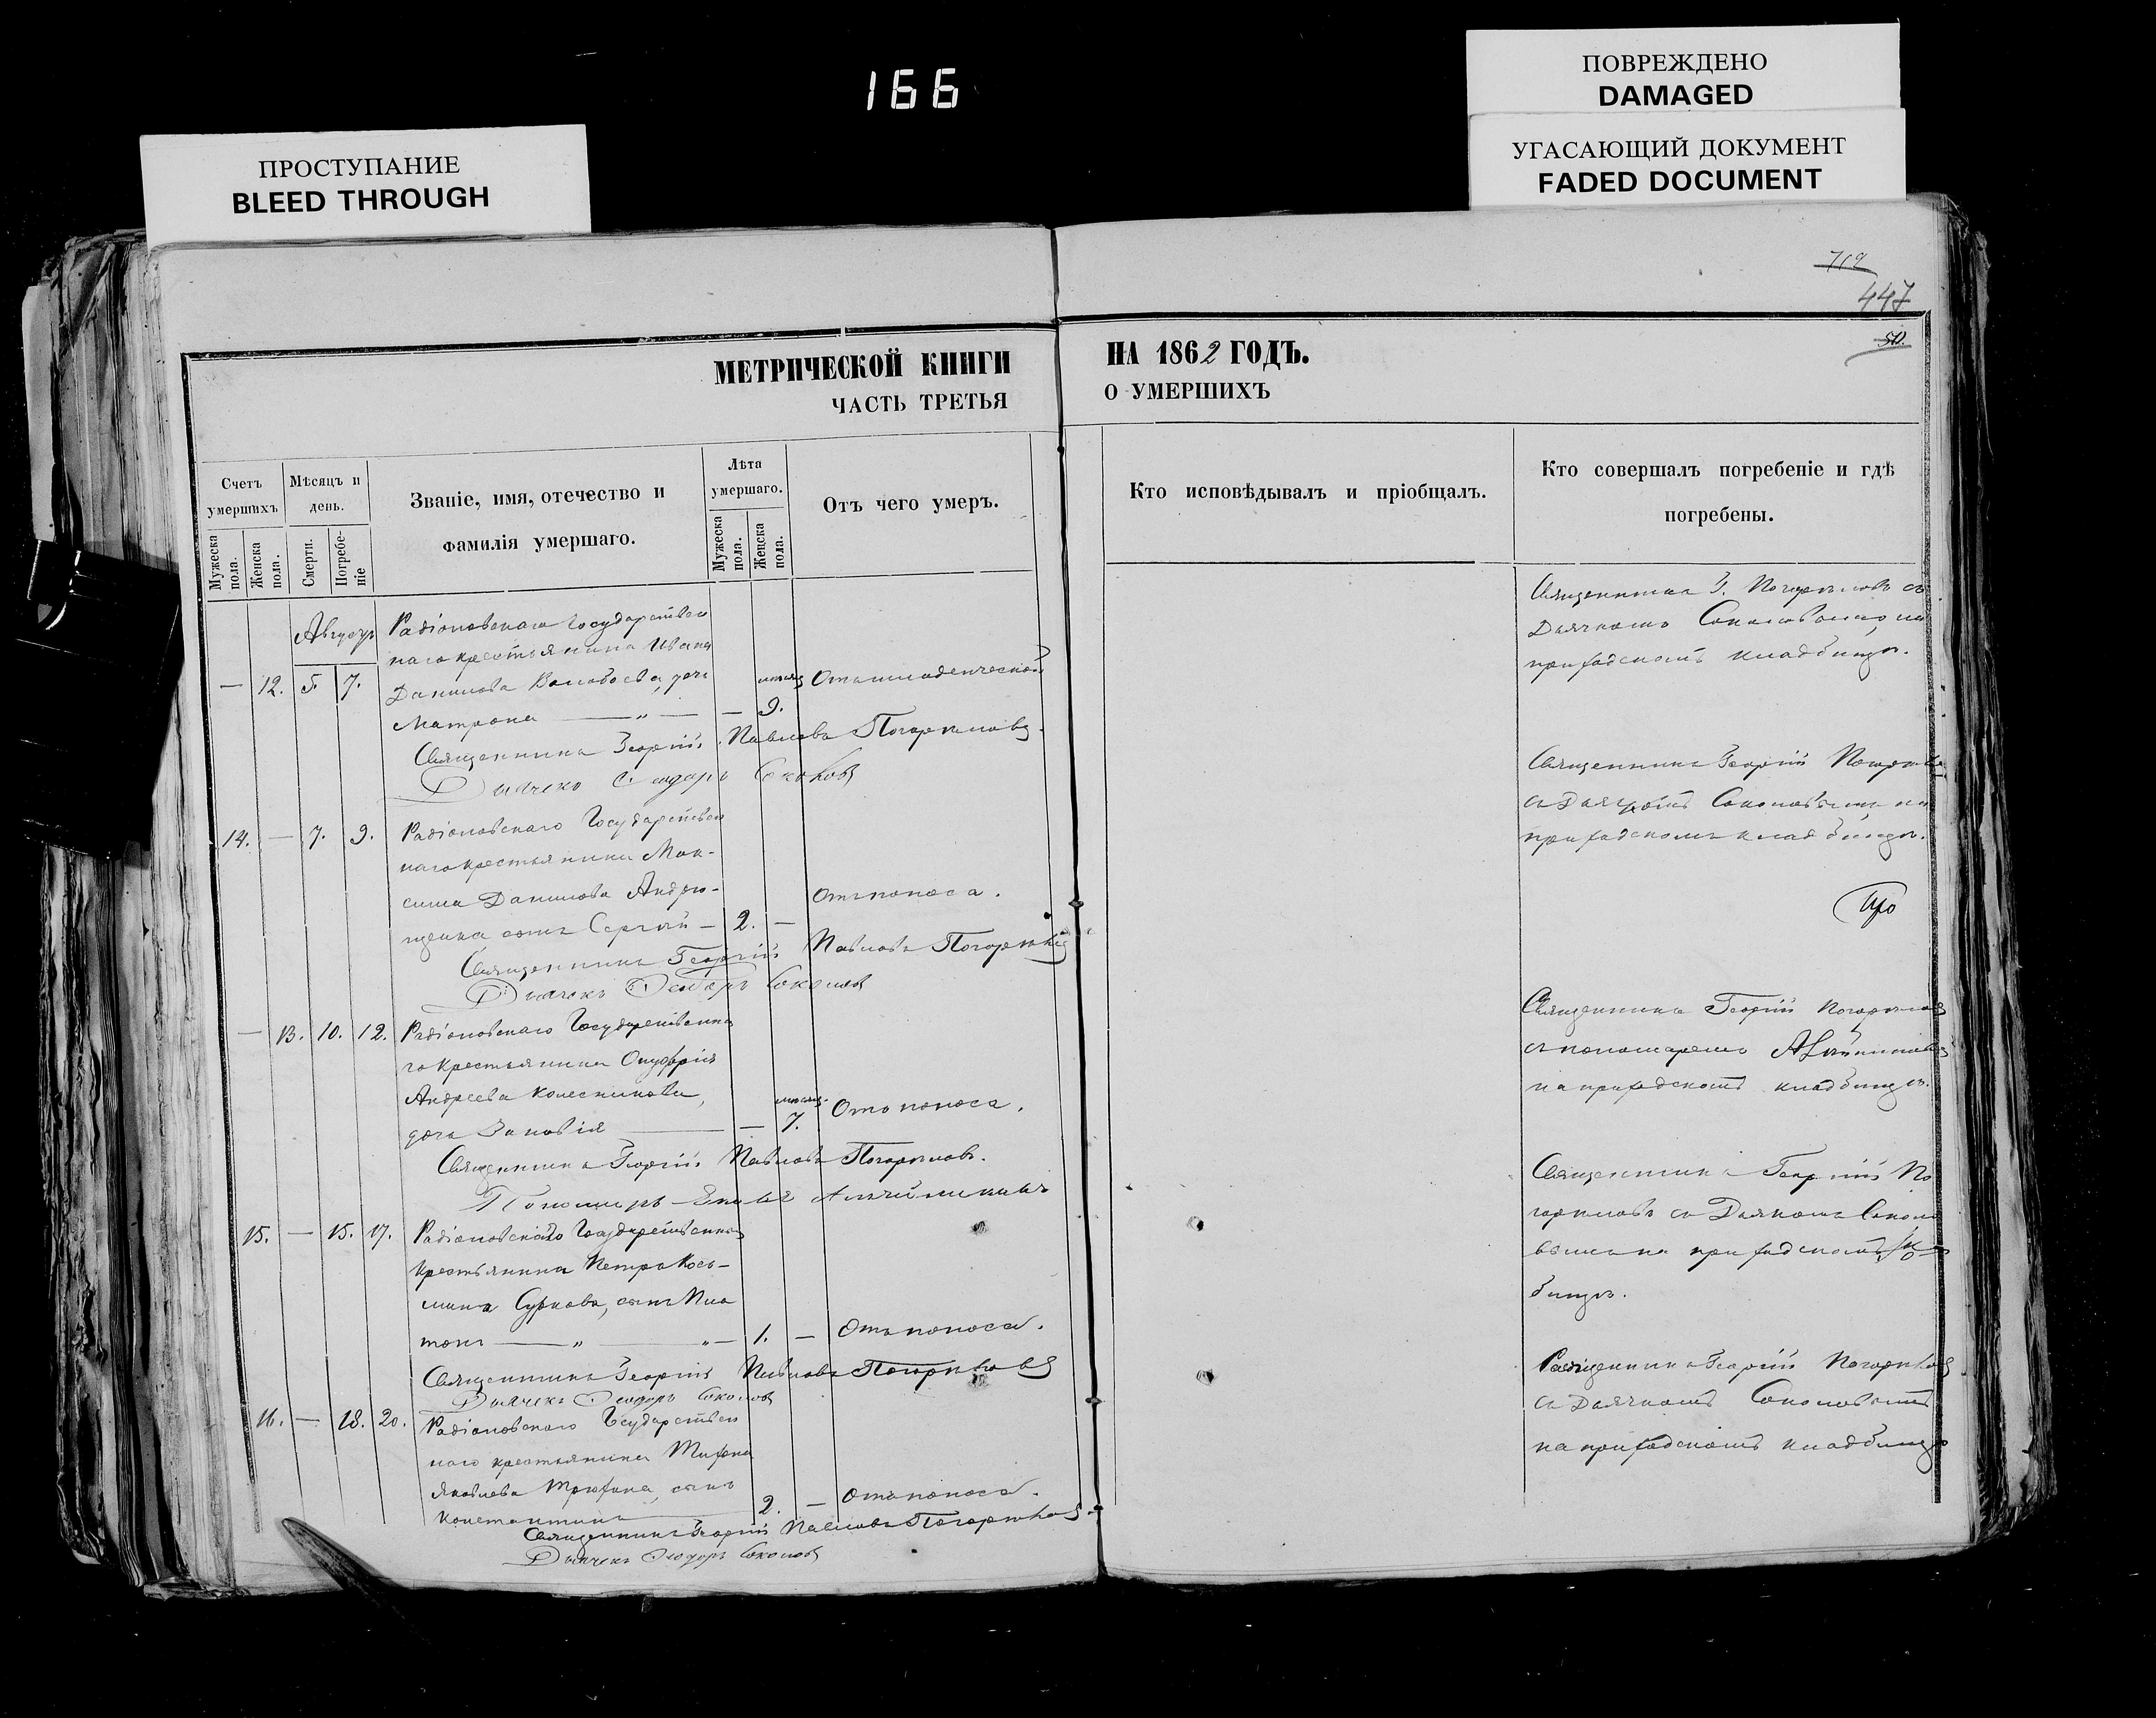 166
ПОВРЕЖДЕНО
DAMAGED
УГАСАЮЩИЙ ДОКУМЕНТ
FADED DOCUMENT
ПРОСТУПАНИЕ
BLEED THROUGH
719
447
50.
МЕТРИЧЕСКОЙ КНИГИ НА 1862 ГОДЪ.
ЧАСТЬ ТРЕТЬЯ О УМЕРШИХЪ
Счетъ умершихъ
Мужеска пола.
Женска пола.
Мѣсяцъ и день.
Смерти.
Погребеніе
Званіе, имя, отечество и
фамилія умершаго.
Лѣта умершаго.
Мужеска пола.
Женска пола.
Отъ чего умеръ.
Кто исповѣдывалъ и пріобщалъ.
Кто совершалъ погребеніе и гдѣ
погребены.
Августъ Радіоновскаго Государствен
наго крестьянина Ивана
— 12. 5. 7. Данилова дочь
Матрона — „ — — 9. Отъ младенческой
Священникъ Георгій Павловъ Погорѣловъ.
Дьячекъ Ѳеодоръ Соколовъ
Священникъ Г. Погорѣловъ съ
Дьячкомъ Соколовымъ, на
приходскомъ кладбищѣ.
14. — 7. 9. Радіоновскаго Государствен
наго крестьянина Мак-
сима Данилова Андрю-
щенка сынъ Сергѣй — 2. — Отъ поноса.
Священникъ Георгій Павловъ Погорѣловъ
Дьячекъ Ѳеодоръ Соколовъ
Священникъ Георгій Погорѣлов
съ Дьячкомъ Соколовымъ на
приходскомъ кладбищѣ.
— 13. 10. 12. Радіоновскаго Государственна
го крестьянина Онуфрія
Андреева Колесникова,
дочь Зиновія — — 7. Отъ поноса.
Священникъ Георгій Павловъ Погорѣловъ.
Пономарь
Священникъ Георгій Погорѣловъ
съ пономаремъ
на приходскомъ кладбищѣ.
15. — 15. 17. Радіоновскаго Государственнаго
крестьянина Петра Кось-
мина Суркова, сынъ Пла
тонъ — „ — „ — 1. — Отъ поноса.
Священникъ Георгій Павловъ Погорѣловъ
Дьячекъ Ѳеодоръ Соколовъ
Священникъ Георгій По
горѣловъ съ Дьячкомъ Соколо
вымъ на приходскомъ кла
бищѣ.
16. — 18. 20. Радіоновскаго Государствен
наго крестьянина
Яковлева сынъ
Константинъ — 2. — Отъ поноса.
Священникъ Георгій Павловъ Погорѣловъ
Дьячекъ Ѳеодоръ Соколовъ
Священникъ Георгій Погорѣловъ
съ Дьячкомъ Соколовымъ
на приходскомъ кладбищѣ